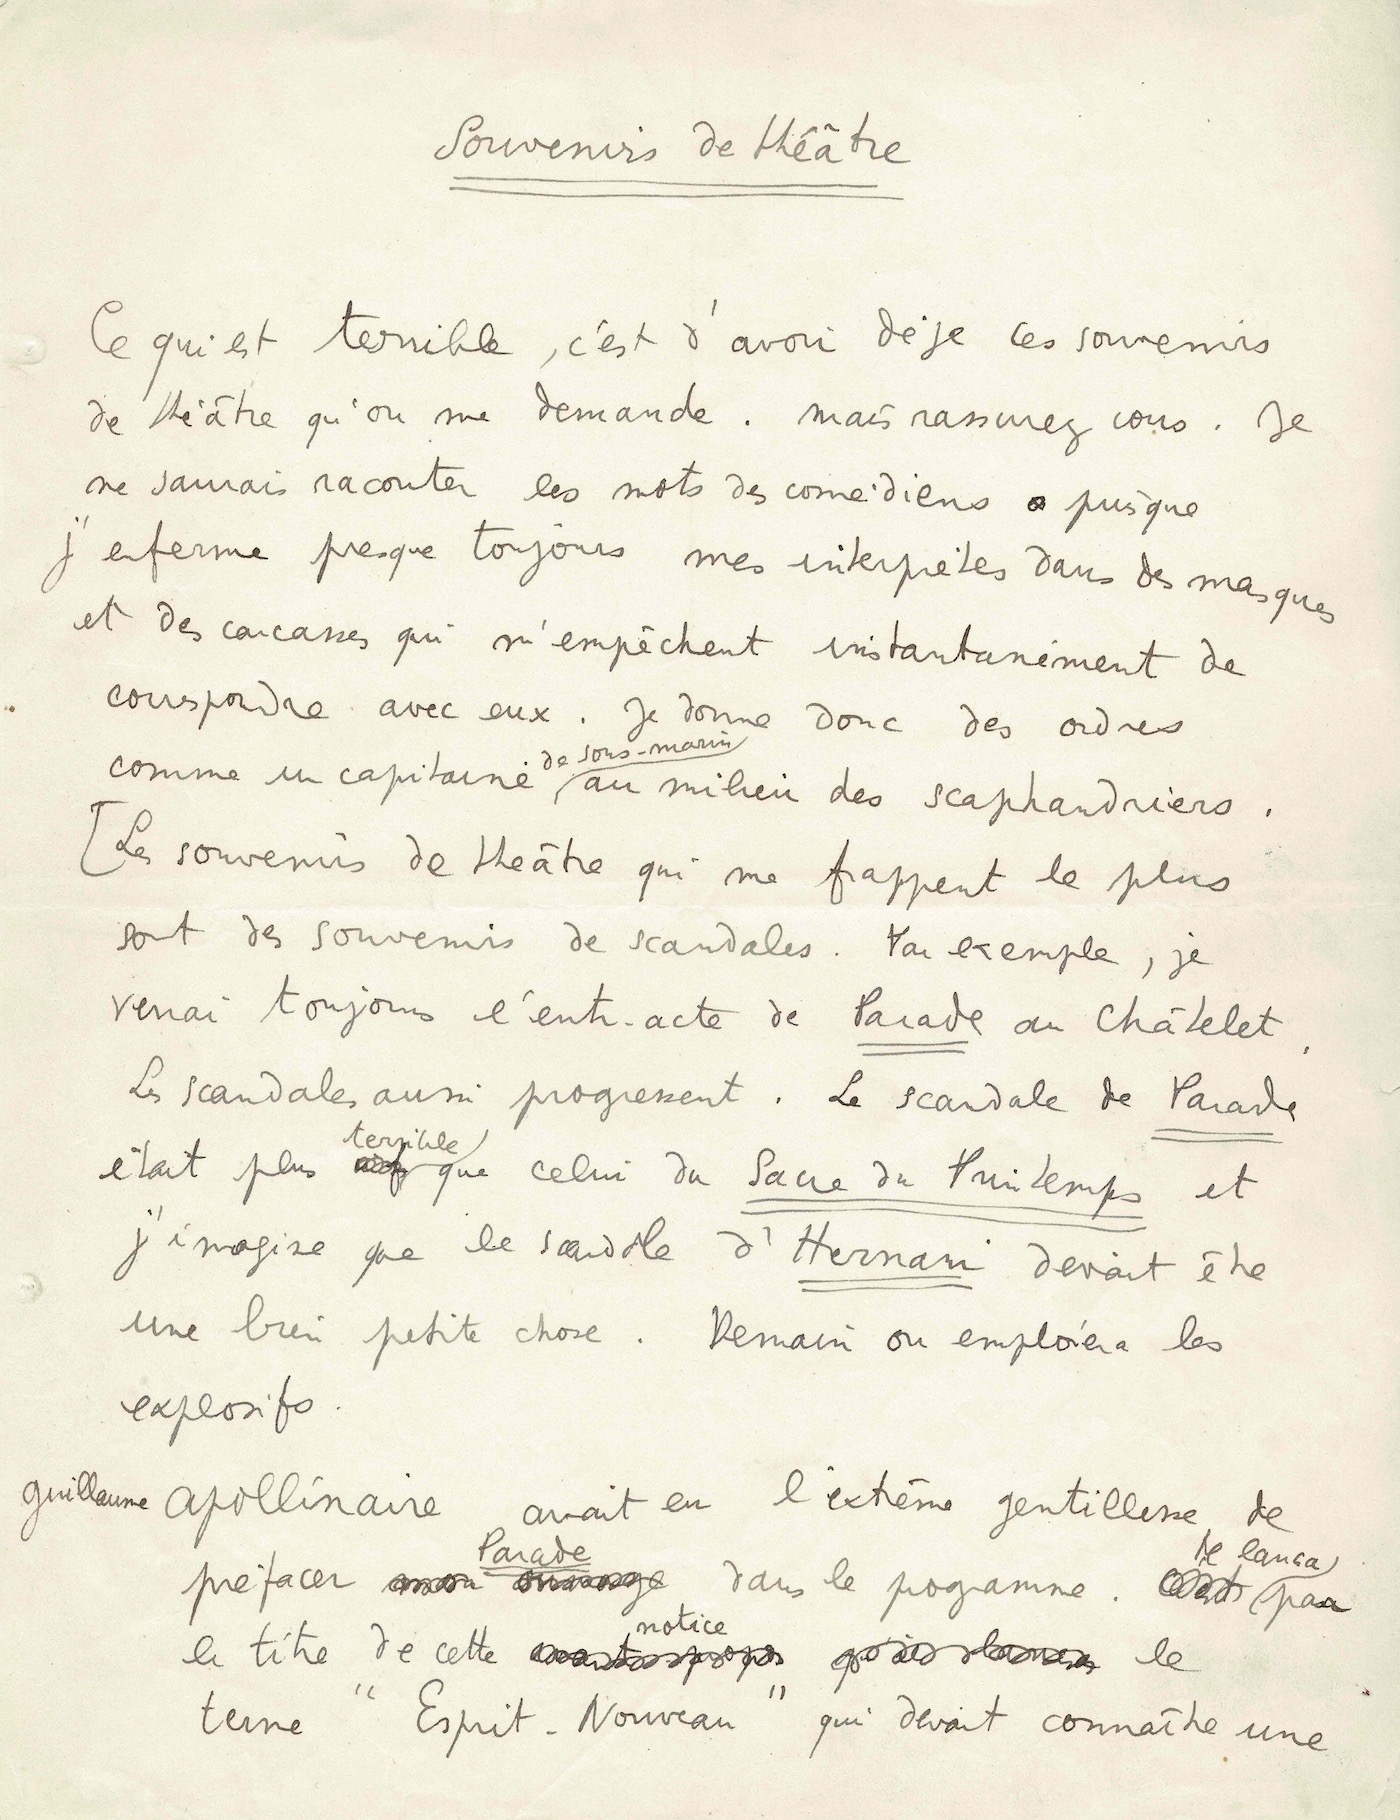 Souvenirs de théâtre
Ce qui est terrible, c'est d'avoir déjà ces souvenirs
de théâtre qu'on me demande. Mais rassurez vous. Je
ne saurais raconter les mots des comédiens puisque
j'enferme presque toujours mes interprètes dans des masques
et des carcasses qui m'empêchent instantanément de
correspondre avec eux. Je donne donc des ordres
de sous-marin
comme un capitaine au milieu des scaphandriers.
[Les souvenirs de théâtre qui me frappent le plus
sont des souvenirs de scandales. Par exemple, je
verrai toujours l'entr-acte de Parade au Châtelet.
Les scandales aussi progressent. Le scandale de Parade
terrible
était plus que celui du Sacre du Printemps et
j'imagine que le scandale d'Hernani devait être
une bien petite chose. Demain on emploiera les
explosifs.
Guillaume Apollinaire avait eu l'extrême gentillesse de
Parade Il lança
préfacer mon ouvrage dans le programme. C'est par
le titre de cette notice avant-propos qu'il lança le
terme "Esprit-Nouveau" qui devait connaître une